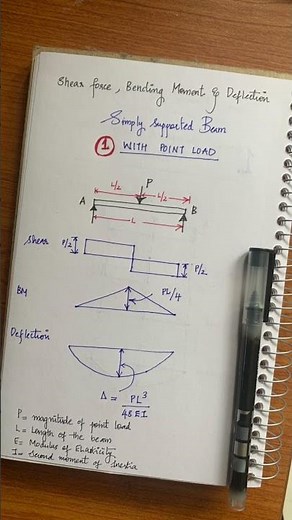 Shear force, Bending Moment & Deflection
Simply supported Beam
1 WITH POINT LOAD
P
L/2 L/2
A B
L
Shear P/2 P/2
BM PL/4
Deflection
Δ = PL³/48EI
P = magnitude of point load
L = Length of the beam
E = Modulus of Elasticity
I = second moment of inertia